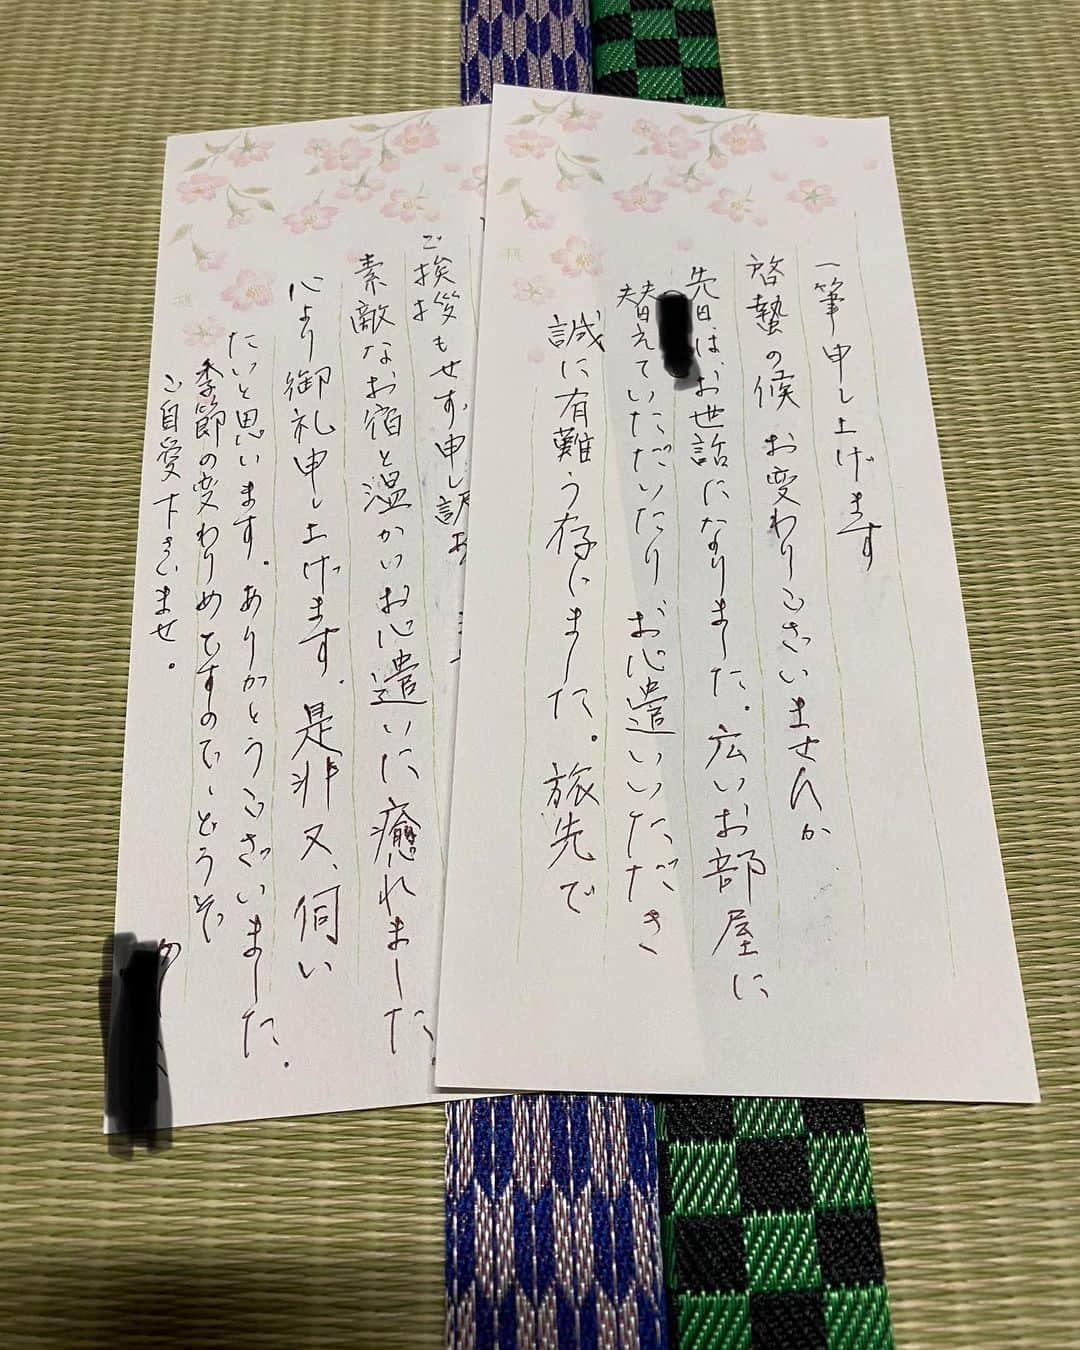 一筆申し上げます
啓蟄の候 お変わりございませんか
先日は、お世話になりました。広いお部屋に
替えていただいたり、お心遣いいただき
誠に有難う存じました。旅先で
ご挨拶もせず申し訳
素敵なお宿と温かいお心遣いに癒れました。
心より御礼申し上げます。是非又、伺い
たいと思います。ありがとうございました。
季節の変わりめですので、どうぞ
ご自愛下さいませ。